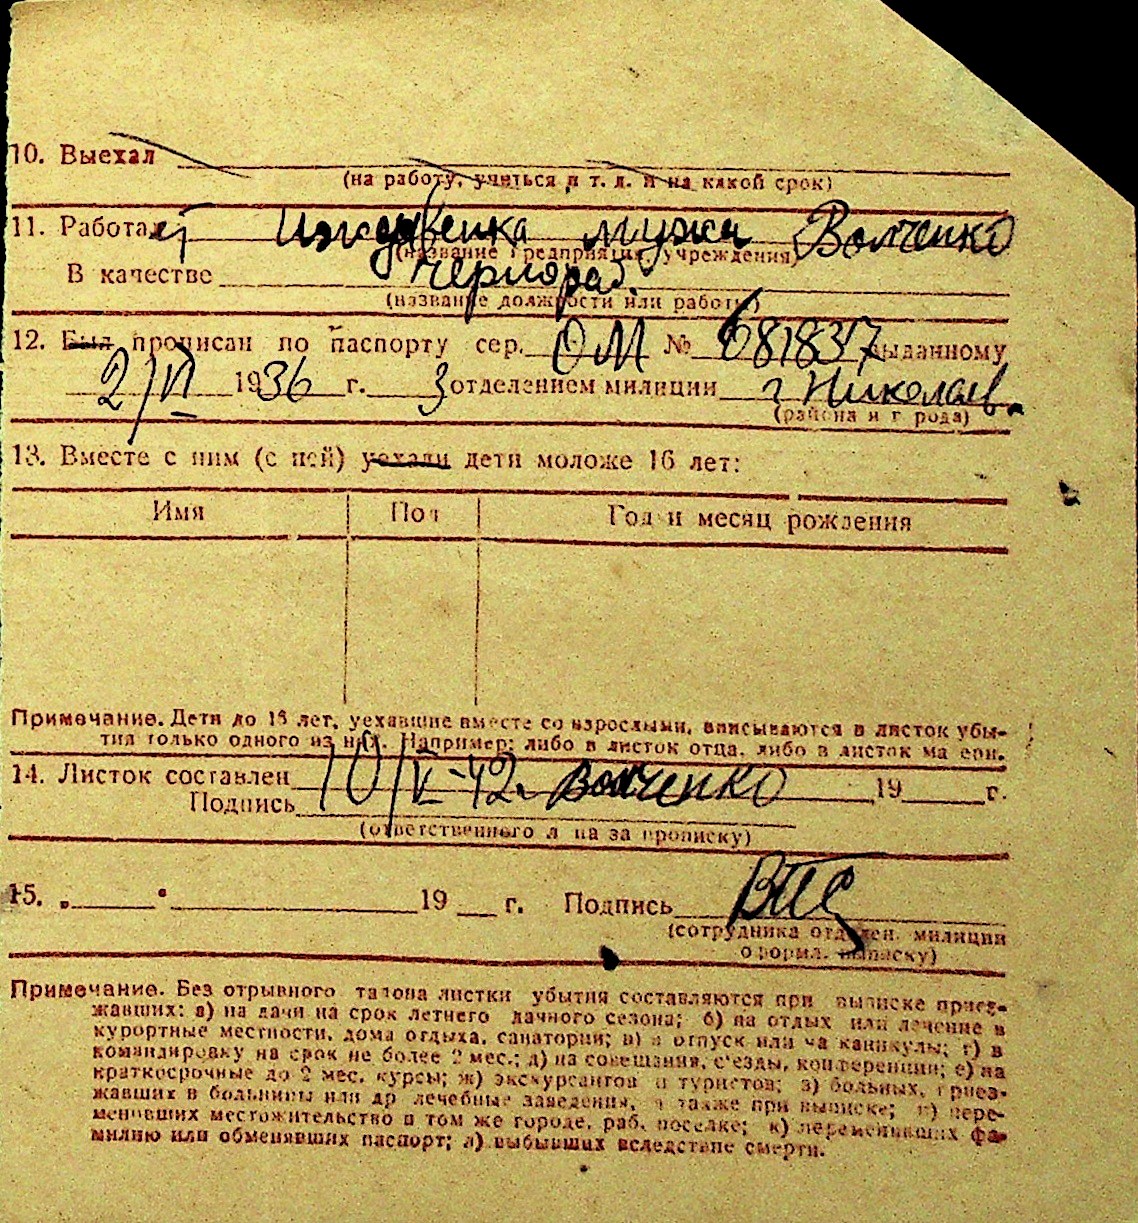 10. Выехал
(на работу, учиться и т. д. и на какой срок)
11. Работает иждивенка мужа Волченко
(название предприятия, учреждения)
В качестве чернораб.
(название должности или работы)
12. Был прописан по паспорту сер. ОМ № 681837 выданному
2/VI 1936 г. 3 отделением милиции г Николаев.
(района и города)
13. Вместе с ним (с ней) уехали дети моложе 16 лет:
Имя Пол Год и месяц рождения
Примечание. Дети до 16 лет, уехавшие вместе со взрослыми, вписываются в листок убы-
тия только одного из них. Например: либо в листок отца, либо в листок матери.
14. Листок составлен 10/V-42. Волченко 19 г.
Подпись
(ответственного лица за прописку)
15. „ “ 19 г. Подпись
(сотрудника отделен. милиции
оформл. выписку)
Примечание. Без отрывного талона листки убытия составляются при выписке приез-
жавших: а) на дачи на срок летнего дачного сезона; б) на отдых или лечение в
курортные местности, дома отдыха, санатории; в) в отпуск или на каникулы; г) в
командировку на срок не более 2 мес.; д) на совещания, с'езды, конференции; е) на
краткосрочные до 2 мес. курсы; ж) экскурсантов и туристов; з) больных, приез-
жавших в больницы или др лечебные заведения, а также при выписке; и) пере-
менивших местожительство в том же городе, раб. поселке; к) переменивших фа-
милию или обменявших паспорт; л) выбывших вследствие смерти.